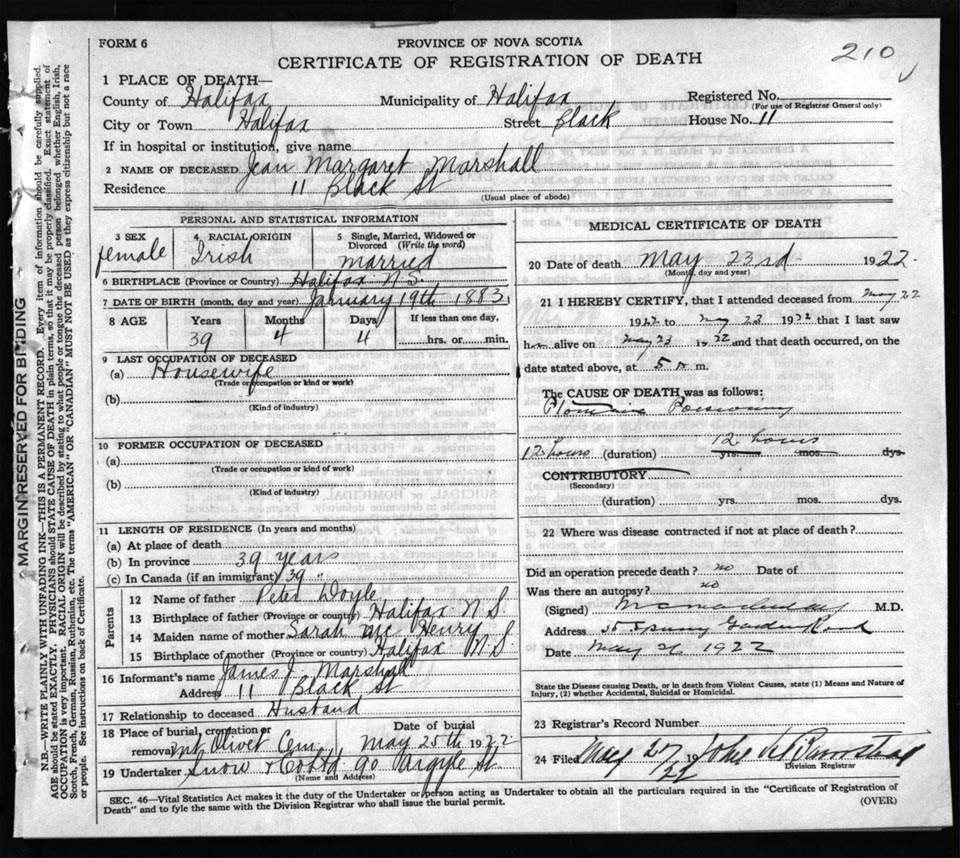 FORM 6
PROVINCE OF NOVA SCOTIA
210
CERTIFICATE OF REGISTRATION OF DEATH
1 PLACE OF DEATH—
County of Halifax Municipality of Halifax Registered No.
(For use of Registrar General only)
City or Town Halifax Street Black House No. 11
If in hospital or institution, give name
2 NAME OF DECEASED Jean Margaret Marshall
Residence 11 Black St
(Usual place of abode)
PERSONAL AND STATISTICAL INFORMATION
3 SEX 4 RACIAL ORIGIN 5 Single, Married, Widowed or Divorced (Write the word)
female Irish married
6 BIRTHPLACE (Province or Country) Halifax N.S.
7 DATE OF BIRTH (month, day and year) January 19th 1883
8 AGE Years Months Days If less than one day,
39 4 4 hrs. or min.
9 LAST OCCUPATION OF DECEASED
(a) Housewife
(Trade or occupation or kind or work)
(b)
(Kind of industry)
10 FORMER OCCUPATION OF DECEASED
(a)
(Trade or occupation or kind or work)
(b)
(Kind of industry)
11 LENGTH OF RESIDENCE (In years and months)
(a) At place of death
(b) In province 39 years
(c) In Canada (if an immigrant) 39 "
Parents
12 Name of father Peter Doyle
13 Birthplace of father (Province or country) Halifax N S
14 Maiden name of mother Sarah Mc Henry
15 Birthplace of mother (Province or country) Halifax N S.
16 Informant's name James J. Marshall
Address 11 Black St
17 Relationship to deceased Husband
18 Place of burial, cremation or removal Date of burial
Mt Olivet Cem. May 25th 1922
19 Undertaker Snow & Co 90 Argyle St.
(Name and Address)
MEDICAL CERTIFICATE OF DEATH
20 Date of death May 23rd 1922
(Month, day and year)
21 I HEREBY CERTIFY, that I attended deceased from May 22
1922 to May 23 1922 that I last saw
h alive on May 23 1922 and that death occurred, on the
date stated above, at 5 m.
The CAUSE OF DEATH was as follows:
Ptomaine Poisoning
12 hours
12 hours (duration) yrs. mos. dys.
CONTRIBUTORY
(Secondary)
(duration) yrs. mos. dys.
22 Where was disease contracted if not at place of death?
Did an operation precede death? no Date of
Was there an autopsy? no
(Signed) M.D.
Address 35 Spring Garden Road
Date May 1922
State the Disease causing Death, or in death from Violent Causes, state (1) Means and Nature of
Injury, (2) whether Accidental, Suicidal or Homicidal.
23 Registrar's Record Number
24 Filed 27 19 22 John
Division Registrar
SEC. 46—Vital Statistics Act makes it the duty of the Undertaker or person acting as Undertaker to obtain all the particulars required in the "Certificate of Registration of
Death" and to fyle the same with the Division Registrar who shall issue the burial permit.
(OVER)
MARGIN RESERVED FOR BINDING
N.B.—WRITE PLAINLY WITH UNFADING INK—THIS IS A PERMANENT RECORD. Every item of information should be carefully supplied.
AGE should be stated EXACTLY. PHYSICIANS should STATE CAUSE OF DEATH in plain terms, so that it may be properly classified. Exact statement of
OCCUPATION is very important. RACIAL ORIGIN will be described by stating to what people or tongue the deceased person belonged whether English, Irish,
Scotch, French, German, Russian, Ruthenian, etc. The terms "AMERICAN" or "CANADIAN" MUST NOT BE USED as they express citizenship but not a race
or people. See instructions on back of Certificate.